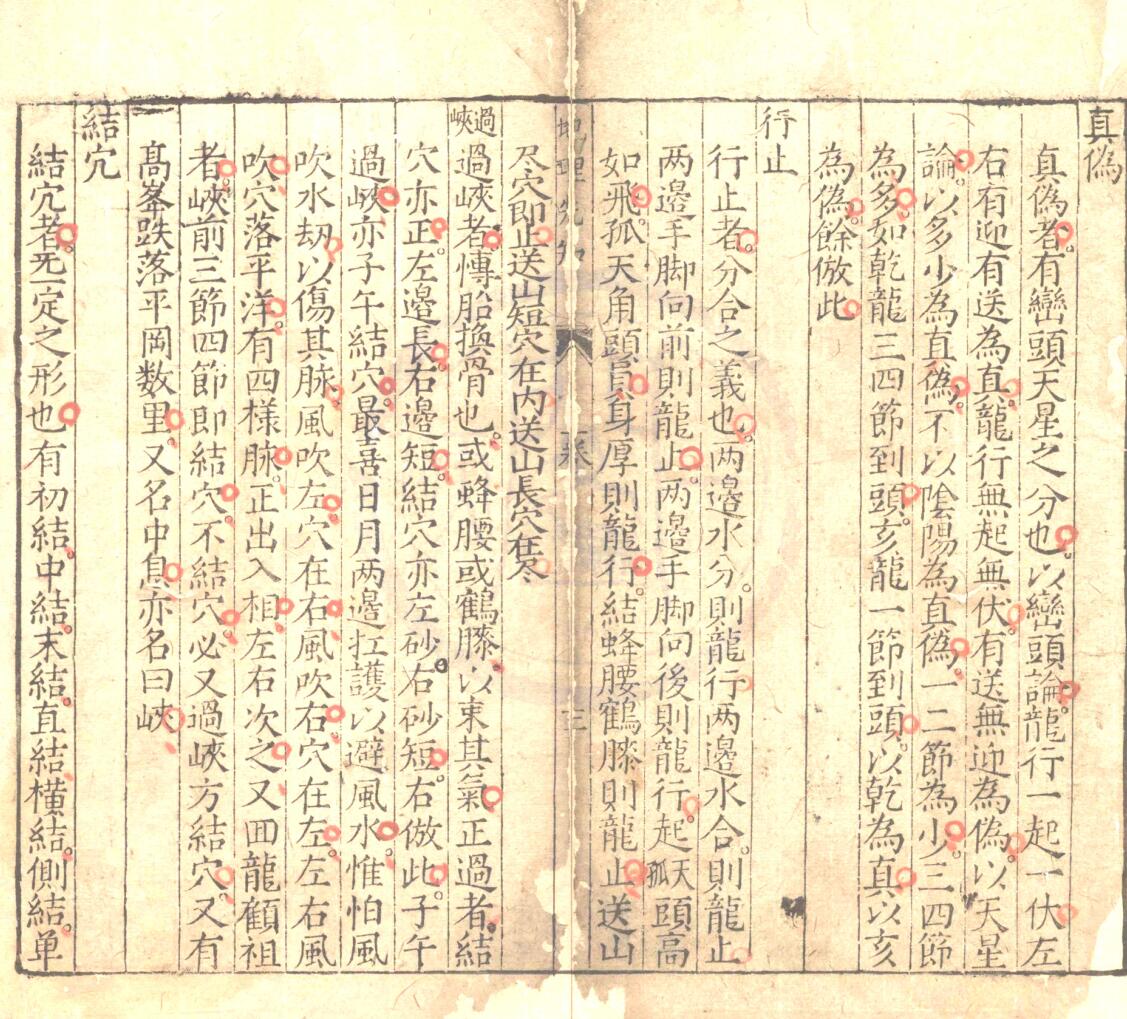 真偽
真偽者。有巒頭天星之分也。以巒頭論。龍行一起一伏左
右有迎有送為真。龍行無起無伏。有送無迎為偽。以天星
論。以多少為真偽。不以陰陽為真偽。一二節為少。三四節
為多。如乾龍三四節到頭。亥龍一節到頭。以乾為真。以亥
為偽。餘倣此
行止
行止者。分合之義也。两邊水分。則龍行。两邊水合。則龍止
两邊手脚向前則龍止。两邊手脚向後則龍行。起天孤頭高
如飛。孤天角頭員身厚則龍行。結蜂腰鶴膝則龍止。送山
尽穴即止送山短穴在内送山長穴在尽
地理 卷 三
過峽 過峽者。愽胎換骨也。或蜂腰或鶴膝。以束其氣。正過者。結
穴亦正。左邊長。右邊短。結穴亦左砂右砂短。右倣此。子午
過峽。亦子午結穴。最喜日月两邊扛護以避風水。惟怕風
吹水刼。以傷其脉。風吹左。穴在右。風吹右。穴在左。左右風
吹。穴落平洋。有四様脉。正出入相。左右次之。又囬龍顧祖
者。峽前三節四節即結穴。不結穴。必又過峽方結穴。又有
高峯跌落平岡数里。又名中息。亦名曰峽
結穴
結穴者。无一定之形也。有初結。中結。末結。直結。橫結。側結。单